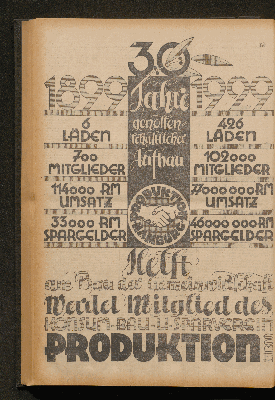 30
1899 1929
Jahre
genossen
schaftlicher
Aufbau
6
LÄDEN
700
MITGLIEDER
114000 RM
UMSATZ
33000 RM
SPARGELDER
426
LÄDEN
102000
MITGLIEDER
77000000 RM
UMSATZ
46000000 RM
SPARGELDER
PRODUKTION
HAMBURG
Helft
am Bau der Gemeinwirtschaft
Werdet Mitglied des
KONSUM-BAU-U. SPARVEREIN
PRODUKTION